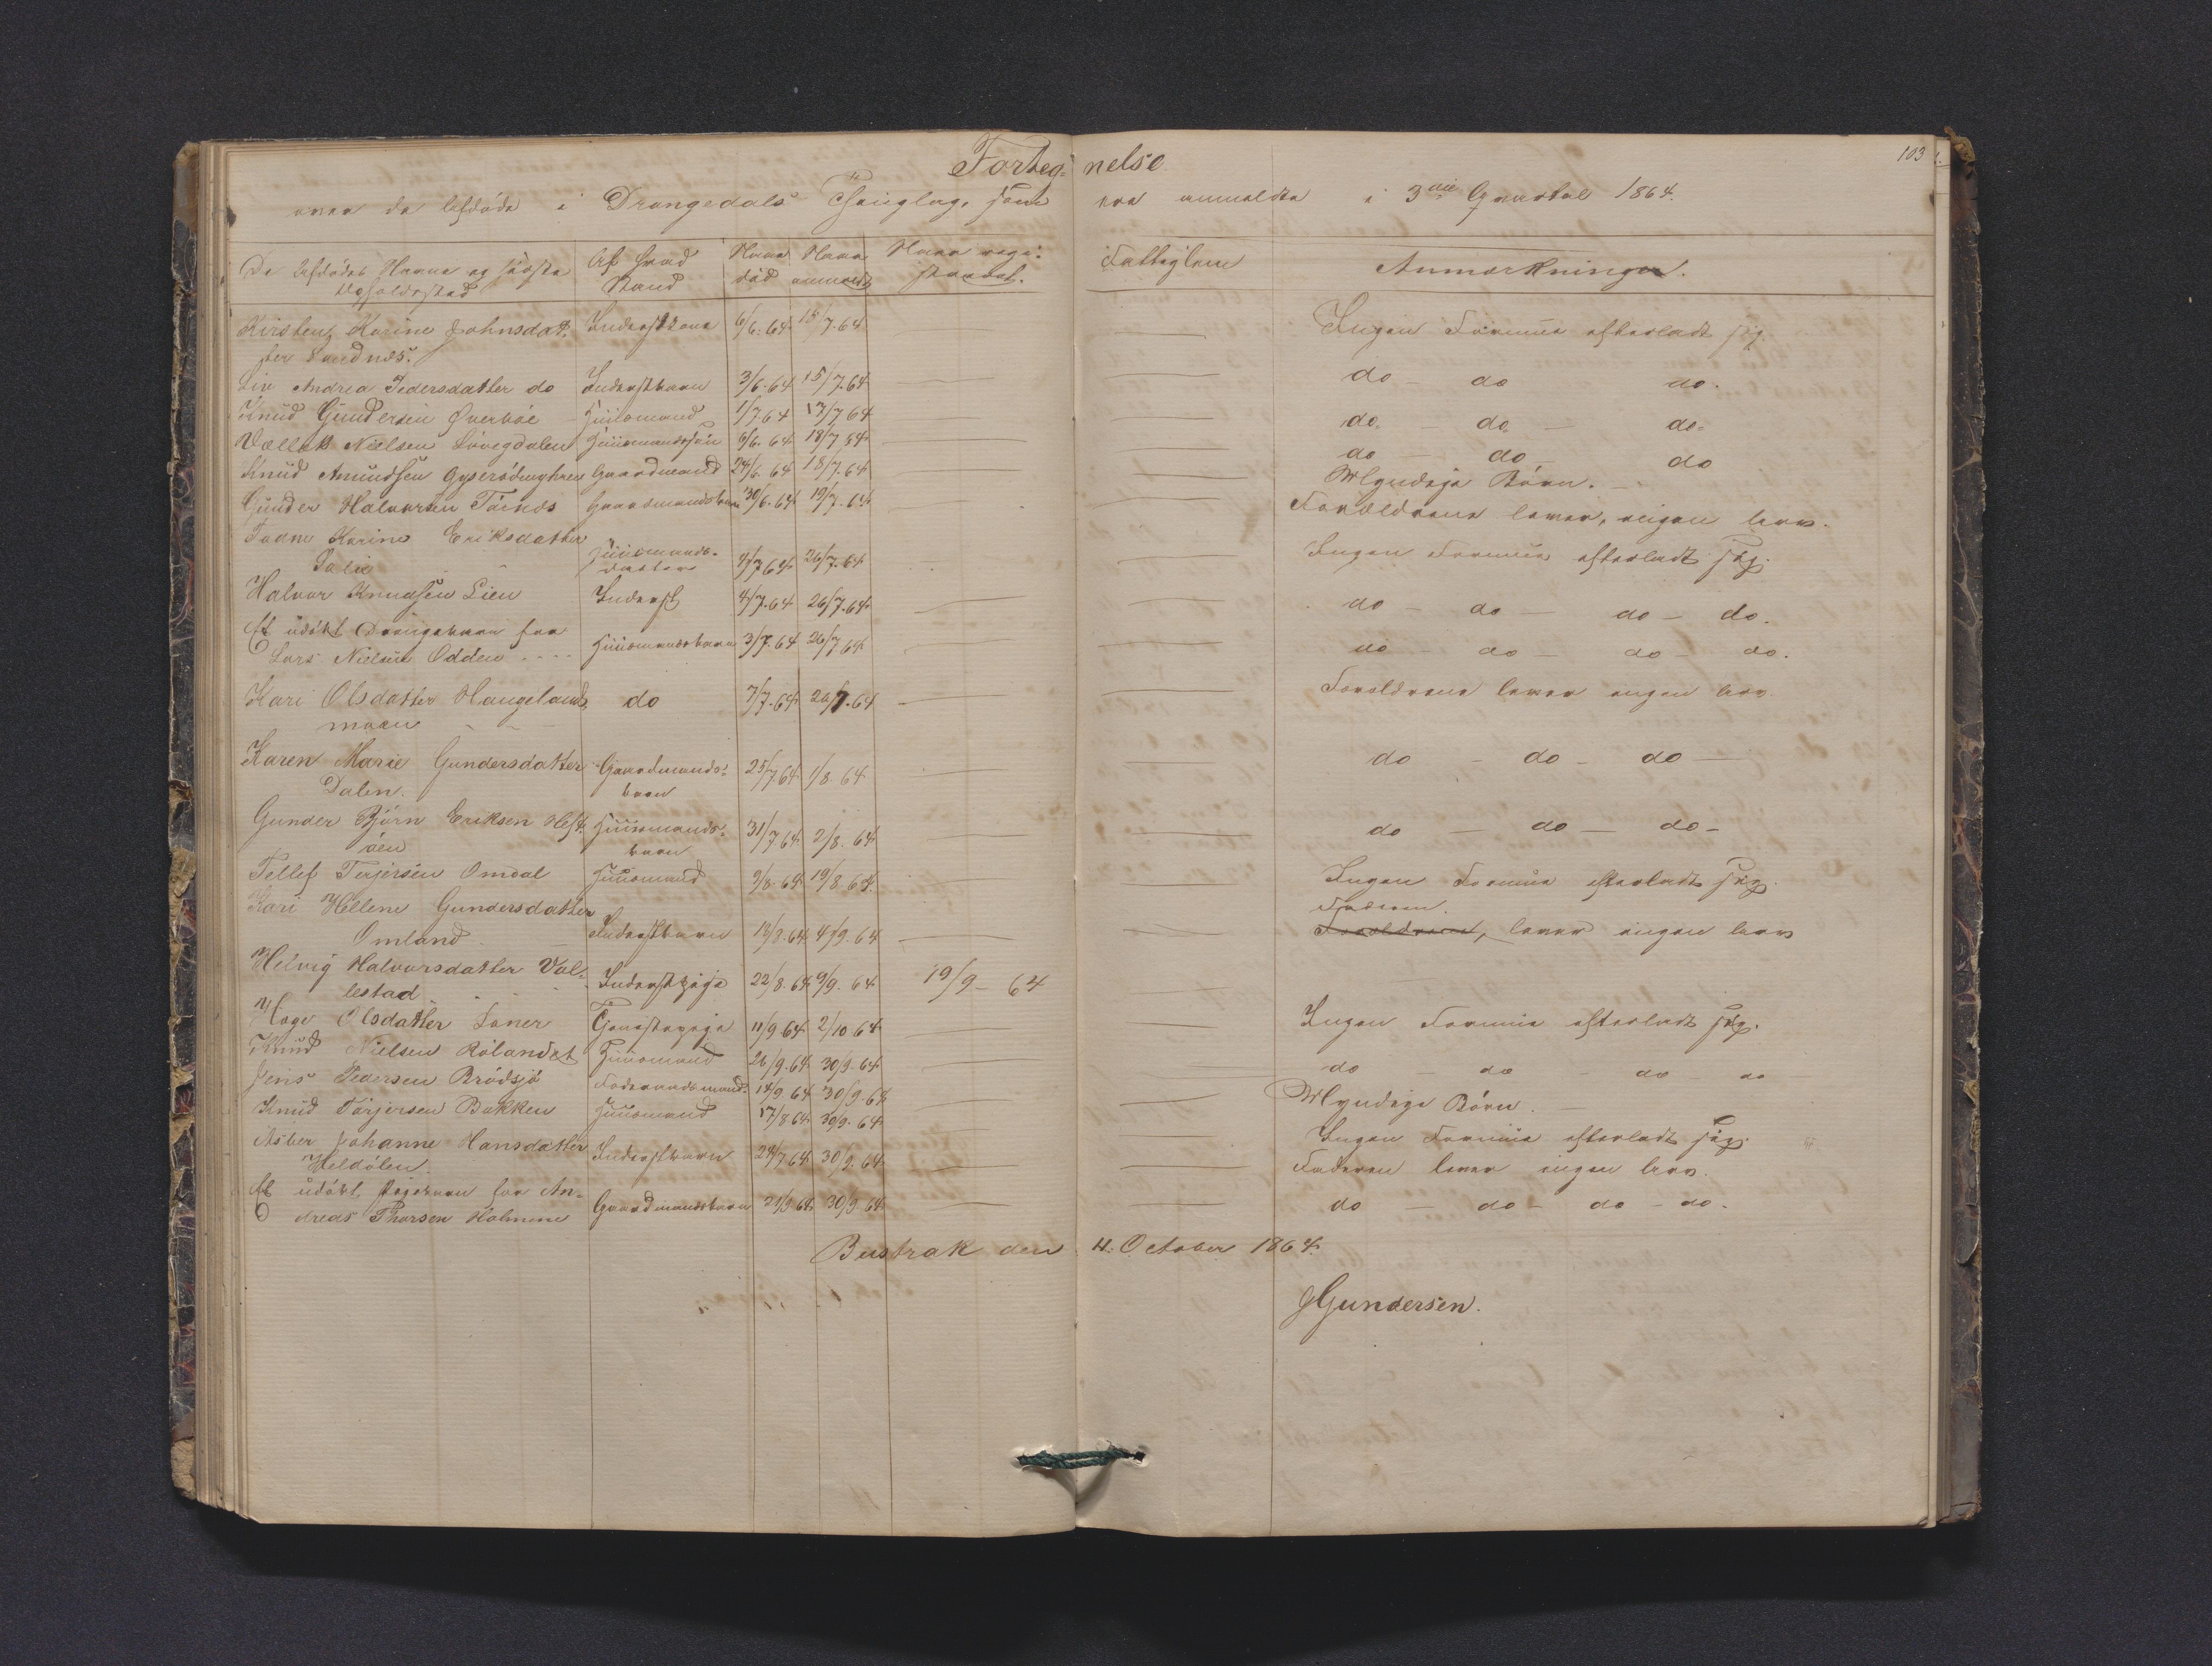 Forteg- nelse
103
over de Afdøde i Drangedals Thinglag, som ere anmeldte i 3die Qvartal 1864.
De Afdødes Navne og sidste Opholdssted | Af hvad Stand | Naar død | Naar anmeldt | Naar regi- streret. | Fattiglem | Anmærkninger.
Kirsten Karine Johnsdat- Inderstkone 6/6. 64. 15/7. 64 Ingen Formue efterladt sig.
ter Sandnæs.
Liv Andrea Pedersdatter do Inderstbarn 3/6. 64 15/7. 64 do - do do.
Knud Gundersen Øverbøe Huusmand 1/7 64 17/7 64 do - do - do
Nielsen Huusmandssøn 6/6. 64 18/7 64 do do do
Knud Amundsen Gaardmand 24/6 64 18/7. 64 Myndige Børn.
Gunder Halvorsen Toknes Gaardmandsbarn 30/6. 64 19/7. 64 Forældrene lever, eigen Arv.
Karine Eriksdatter
Huusmands- datter 4/7 64 26/7. 64 Ingen Formue efterladt sig.
Halvor Knudsen Lien Inderst 4/7. 64 26/7. 64 do - do do - do.
Et udøbt Drengebarn fra
Lars Nielsen Odden Huusmandsbarn 3/7. 64 26/7 64 do - do - do - do.
Kari Olsdatter Haugelands- do 7/7. 64 26/7. 64 Forældrene lever engen Arv.
moen
Karen Marie Gundersdatter Gaardmands- 25/7 64 1/8 64 do - do - do
Dalen. barn
Gunder Björn Eriksen Hest- Huusmands- 31/7 64 2/8. 64 do - do - do -
øen barn
Tellef Terjersen Omdal Huusmand 9/8. 64 19/8. 64 Ingen Formue efterladt sig.
Kari Hellene Gundersdatter Faderen.
Omland Inderstbarn 13/8. 64 4/9. 64 Forældrene, lever eigen Arv
Helvig Halvorsdatter Val- Inderstpige 22/8. 64 9/9. 64 19/9 - 64
lestad
Olsdatter Laner Tjenestepige 11/9 64 2/10 64 Ingen Formue efterladt sig.
Knud Nielsen Rølandet Huusmand 26/9. 64 30/9. 64 do - do - do - do
Jens Pedersen Brødsjø Føderaadsmand 14/9 64 30/9. 64 Myndige Børn.
Knud Torjersen Bakken Huusmand 17/8 64 30/9. 64 Ingen Formue efterladt sig.
Johanne Hansdatter Inderstbarn 24/7 64 30/9. 64 Faderen lever eigen Arv.
Heldølen.
Et udøbt Pigebarn fra An- Gaardmandsbarn 21/9 64 30/9 64 do - do - do - do.
dreas Thorsen Holmene
Bustrak den 4. October 1864.
GGundersen.